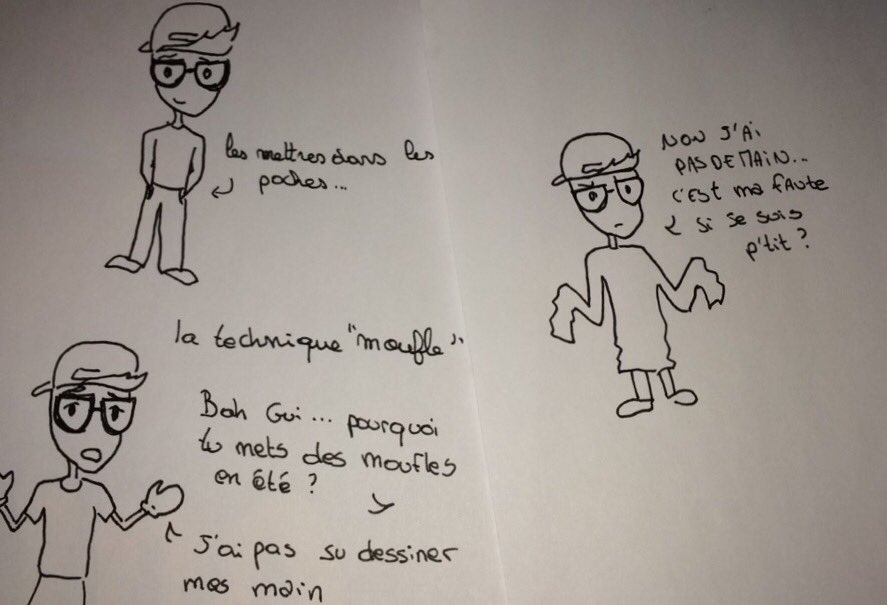 les mettres dans les
poches...
NON J'Ai
PAS DE MAiN...
c'EST ma fAute
si se suis
p'tit ?
la technique "moufle"
Bah Gui... pourquoi
tu mets des moufles
en été ?
J'ai pas su dessiner
mes main